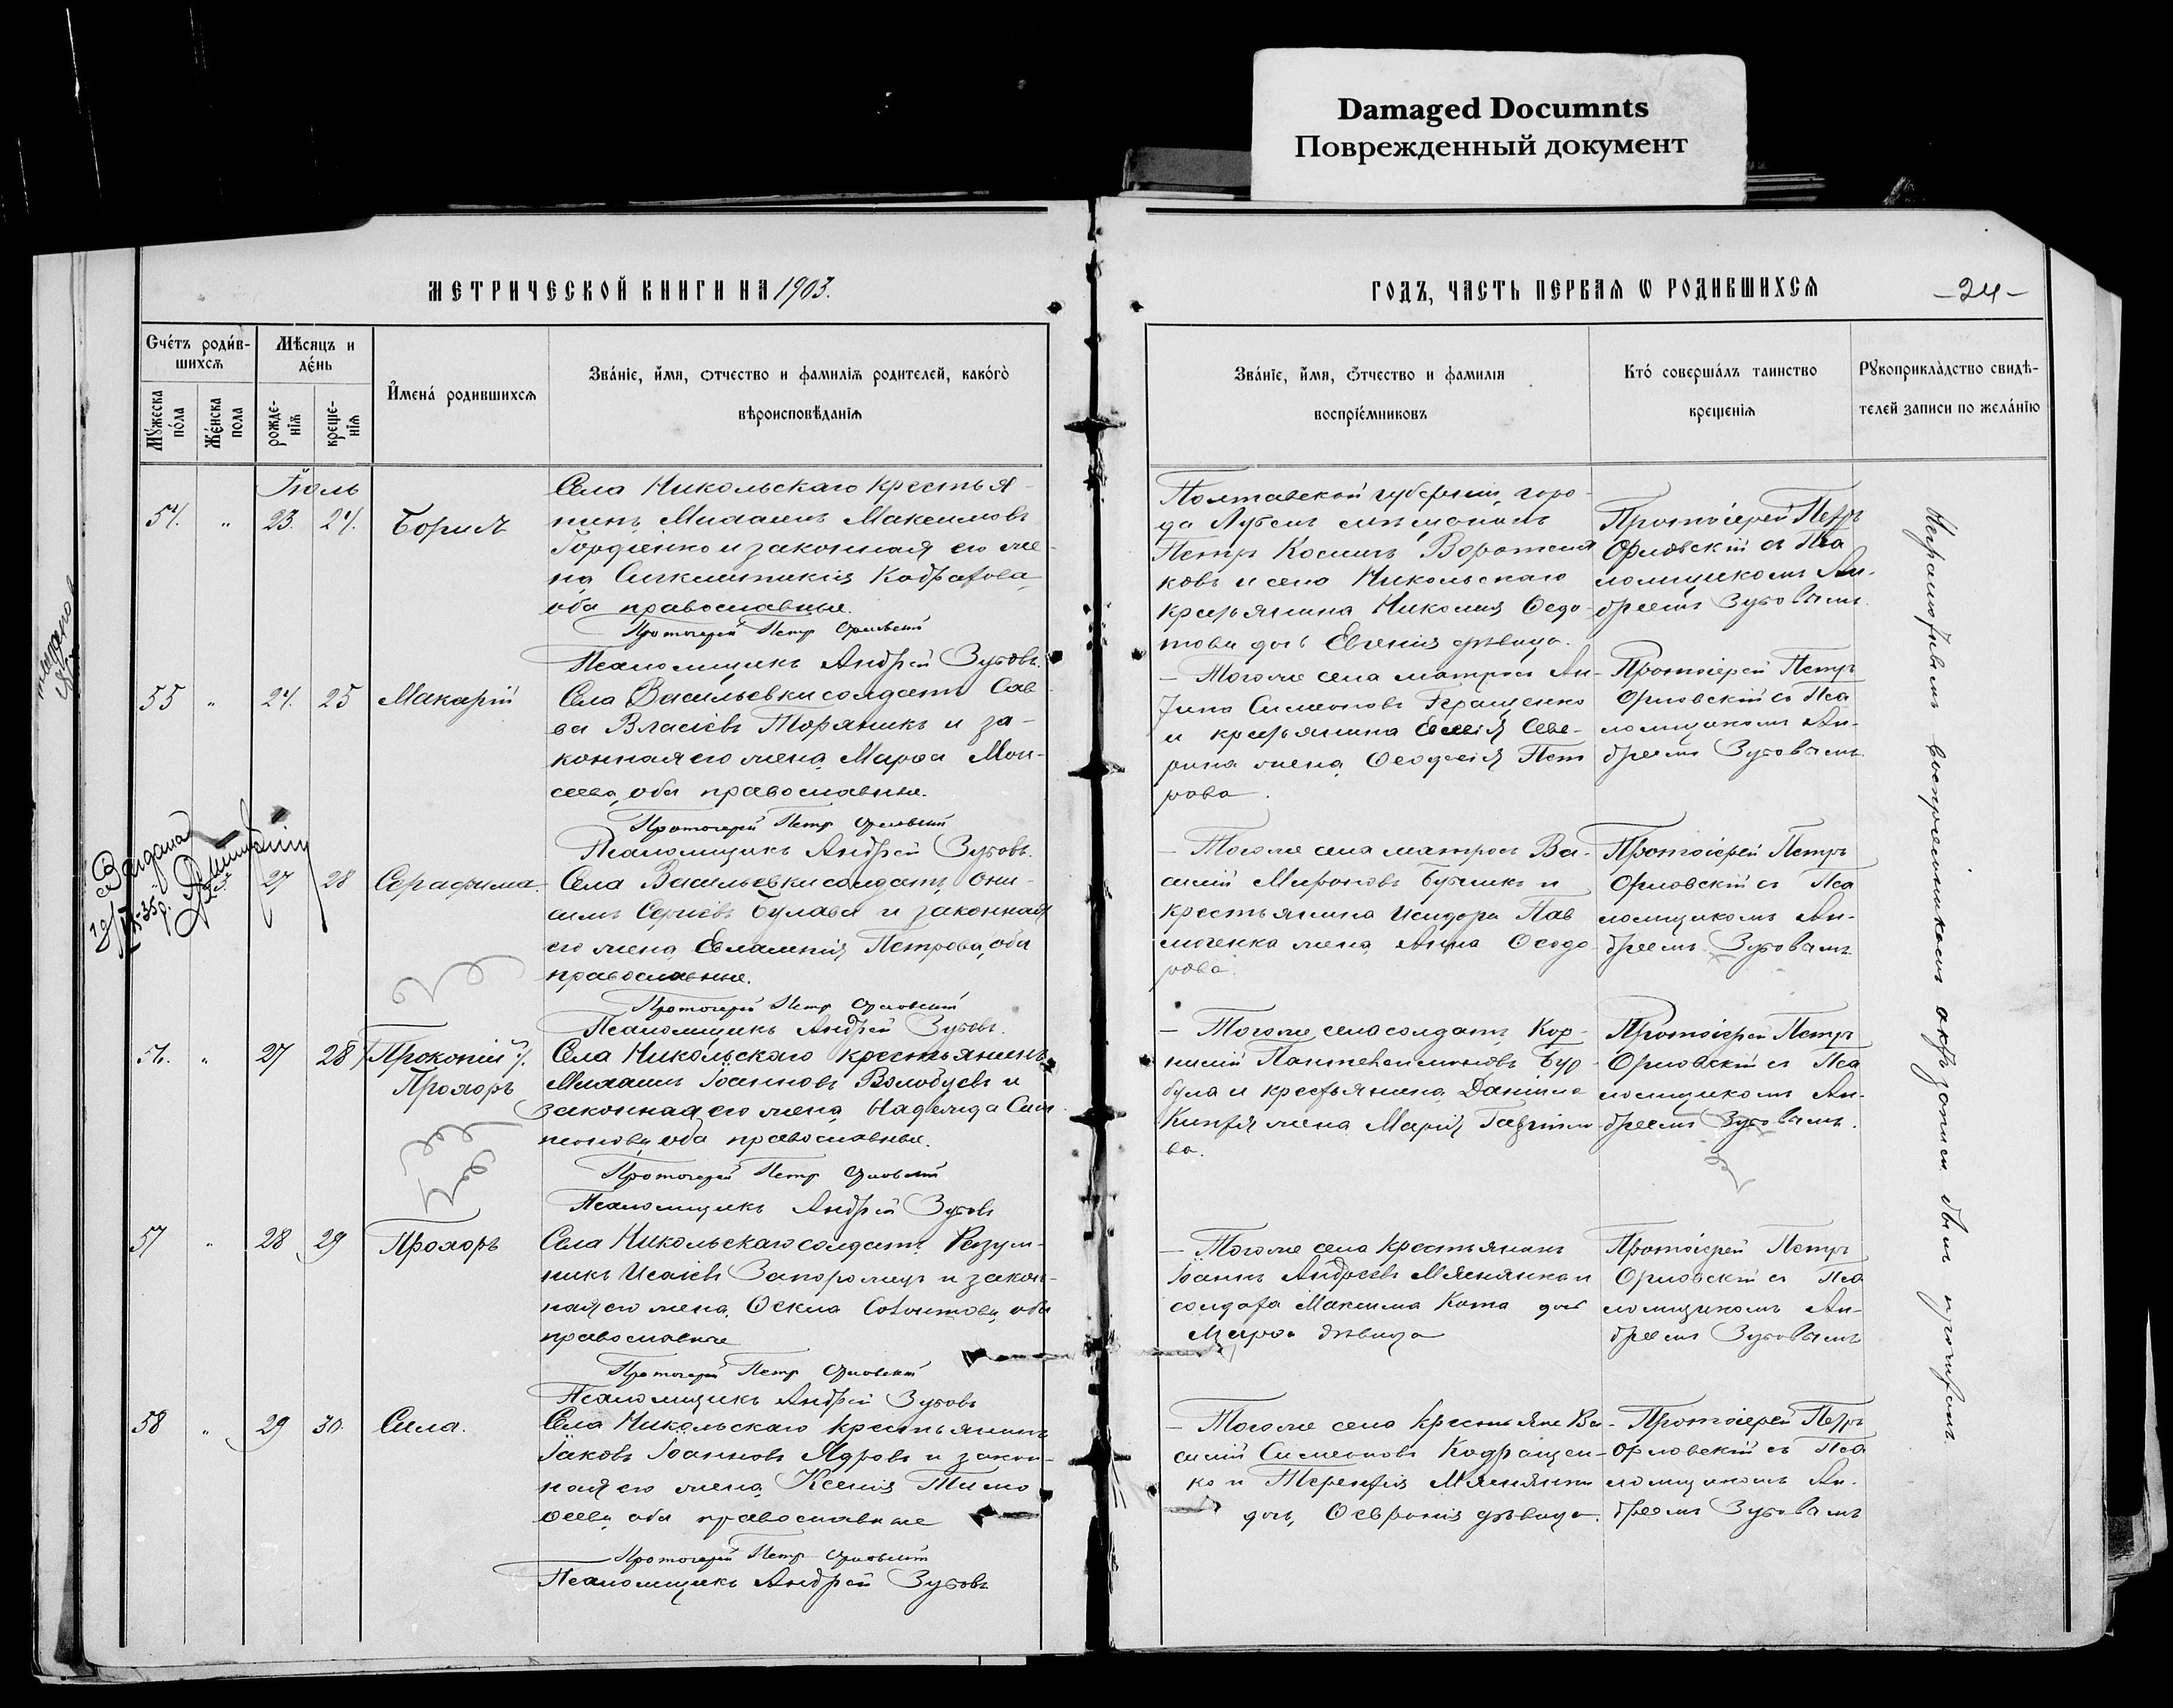 Damaged Documnts
Поврежденный документ
МЕТРИЧЕСКОЙ КНИГИ НА 1903.
ГОДЪ, ЧАСТЬ ПЕРВАЯ Ѡ РОДИВШИХСЯ
-24-
Счéтъ роди́в-
шихсѧ
Мѣсяцъ и
дéнь
Мꙋ́жеска
по́ла
Жéнска
пола
рожде-
нїѧ
креще-
нїѧ
И҆менá родившихсѧ
Звáнїе, и҆́мя, ѻтчество и фамилїѧ родителей, какóгò
вѣроисповѣданїѧ
Звáнїе, и҆́мя, ѻтчество и фамилїя
воспрїéмниковъ
Ктó совершáлъ таинство
крещенїѧ
Рꙋкоприклàдство свидѣ-
телей записи по желáнїю
Іюль
54. " 23. 24. Борисъ
Села Никольскаго крестья-
нинъ Михаилъ Максимовъ
Гордіенко и законная его же-
на
оба православные.
Протоіерей Петр Орловскій
Псаломщикъ Андрей Зубовъ.
Полтавской губерніи, горо-
да Лубенъ мѣщанинъ
Петръ Косминъ
ковъ и села Никольскаго
крестьянина Николая Ѳедо-
това дочь Евгенія дѣвица.
Протоіерей Петръ
Орловскій съ Пса
ломщикомъ Ан-
дреемъ Зубовымъ.
55 " 24. 25 Макарій
Села Васильевки солдатъ Сав-
ва Власіевъ Торяникъ и за-
конная его жена Марѳа Мои-
сеева, оба православные.
Протоіерей Петр Орловскій
Псаломщикъ Андрей Зубовъ.
— Тогоже села матросъ Ан-
типа Симеоновъ Геращенко
и крестьянина Саве-
рина жена Ѳеодосія Пет
рова.
Протоіерей Петръ
Орловскій съ Пса
ломщикомъ Ан-
дреемъ Зубовымъ.
27 28 Серафима.
Села Васильевки солдатъ Они-
симъ Сергіевъ Булава и законная
его жена Евлампія Петрова, оба
православные.
Протоіерей Петр Орловскій
Псаломщикъ Андрей Зубовъ.
— Тогоже села матросъ Ва-
силій Мироновъ и
крестьянина Исидора Пав
люченка жена Анна Ѳеодо
рова.
Протоіерей Петръ
Орловскій съ Пса
ломщикомъ Ан-
дреемъ Зубовымъ.
56. " 27 28 Прокопій
Прохоръ
Села Никольскаго крестьянинъ
Михаилъ Іоанновъ Волобуевъ и
законная его жена Надежда Сим
пеонова, оба православные.
Протоіерей Петр Орловскій
Псаломщикъ Андрей Зубовъ
— Тогоже села солдатъ Кор-
нилій Пантелеимоновъ Бур-
була и крестьянина Даніила
жена Марія Гавріило
ва.
Протоіерей Петръ
Орловскій съ Пса
ломщикомъ Ан-
дреемъ Зубовымъ.
57 " 28 29 Прохоръ
Села Никольскаго солдатъ
никъ Исаіевъ Запорожецъ и закон-
ная его жена Ѳекла оба
православные
Протоіерей Петр Орловскій
Псаломщикъ Андрей Зубовъ
— Тогоже села крестьянинъ
Іоаннъ Андреевъ Мяснянкин
солдата Максима Кота дочь
Марѳа дѣвица
Протоіерей Петръ
Орловскій съ Пса
ломщикомъ Ан-
дреемъ Зубовымъ
58 " 29 30. Сила.
Села Никольскаго крестьянинъ
Іаковъ Іоанновъ Ядровъ и закон-
ная его жена Ксенія Тимо
ѳеева оба православные
Протоіерей Петр Орловскій
Псаломщикъ Андрей Зубовъ
— Тогоже села крестьяне Ва-
силій Симеоновъ Кодращен-
ко и Терентія
дочь, Ѳевронія дѣвица.
Протоіерей Петръ
Орловскій съ Пса
ломщикомъ Ан-
дреемъ Зубовымъ
Неграмотнымъ воспріемникамъ актъ записи былъ прочитанъ.